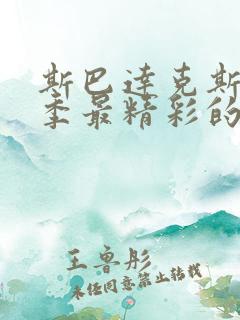 斯巴达克斯
季最精彩的
王鲁彤
未经同意禁止转载